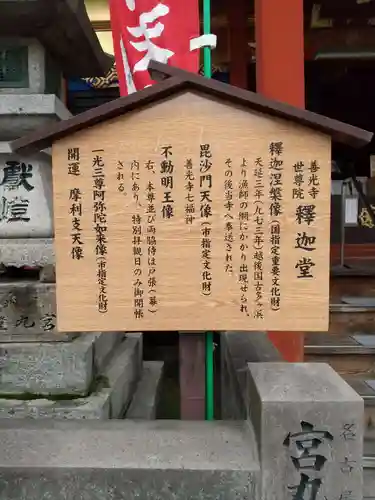 善光寺
世尊院
釋迦堂
釋迦涅槃像(国指定重要文化財)
天延三年(九七三年)越後国古多ヶ浜
より漁師の網にかかり出現せられ
その後当寺へ奉送された。
毘沙門天像(市指定文化財)
善光寺七福神
不動明王像
右、本尊並び両脇侍は戸張(幕)
内にあり、特別拝観日のみ御開帳
される。
一光三尊阿弥陀如来像(市指定文化財)
開運 摩利支天像
獻
燈
宮
丸
名古